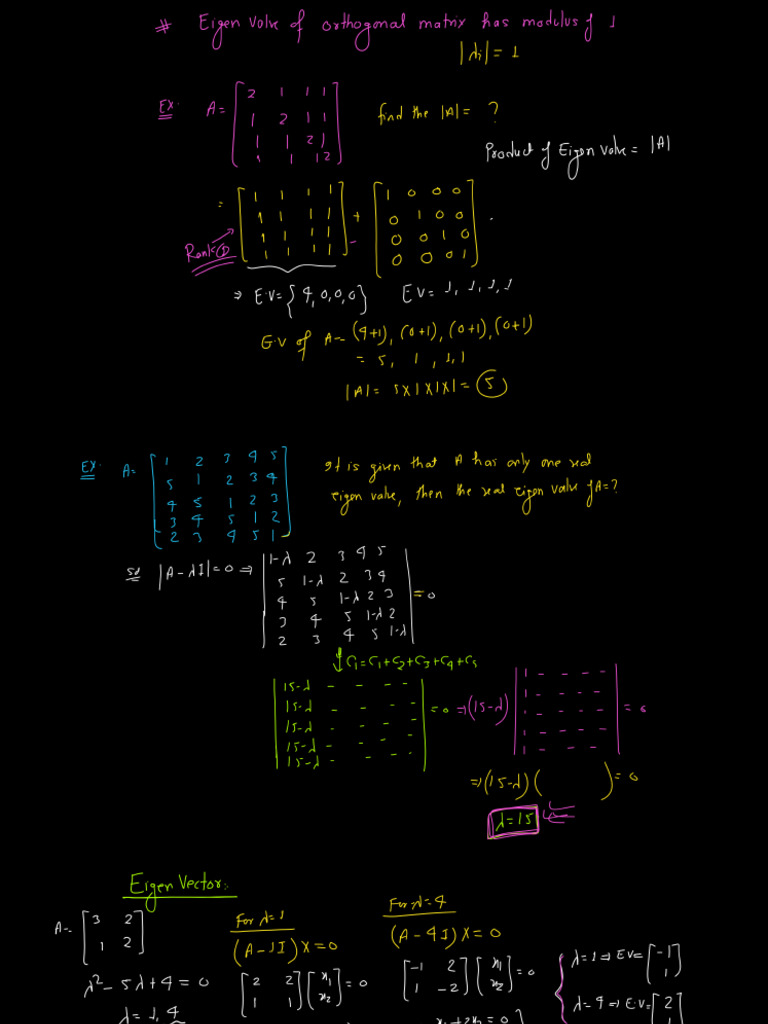 # Eigen value of orthogonal matrix has modulus of 1
|λi| = 1
Ex. A = [2 1 1 1
1 2 1 1
1 1 2 1
1 1 1 2] find the |A| = ?
Product of Eigen value = |A|
= [1 1 1 1
1 1 1 1
1 1 1 1
1 1 1 1] + [1 0 0 0
0 1 0 0
0 0 1 0
0 0 0 1]
Rank=①
⇒ E.V = {4, 0, 0, 0} EV = 1, 1, 1, 1
E.V of A = (4+1), (0+1), (0+1), (0+1)
= 5, 1, 1, 1
|A| = 5 x 1 x 1 x 1 = 5
Ex. A = [1 2 3 4 5
5 1 2 3 4
4 5 1 2 3
3 4 5 1 2
2 3 4 5 1]
It is given that A has only one real
eigen value, then the real eigen value of A = ?
Sol |A-λI| = 0 ⇒ |1-λ 2 3 4 5
5 1-λ 2 3 4
4 5 1-λ 2 3
3 4 5 1-λ 2
2 3 4 5 1-λ| = 0
↓ C1 = C1 + C2 + C3 + C4 + C5
|15-λ - - - -
15-λ - - - -
15-λ - - - -
15-λ - - - -
15-λ - - - -| = 0 ⇒ (15-λ) |1 - - - -
1 - - - -
1 - - - -
1 - - - -
1 - - - -| = 0
⇒ (15-λ) ( ) = 0
λ = 15
Eigen Vector:
A = [3 2
1 2]
λ² - 5λ + 4 = 0
λ = 1, 4
For λ=1
(A-1I) X = 0
[2 2
1 1] [x1
x2] = 0
For λ=4
(A-4I) X = 0
[-1 2
1 -2] [x1
x2] = 0
x1 + 2x2 = 0
λ = 1 ⇒ EV = [-1
1]
λ = 4 ⇒ E.V = [2